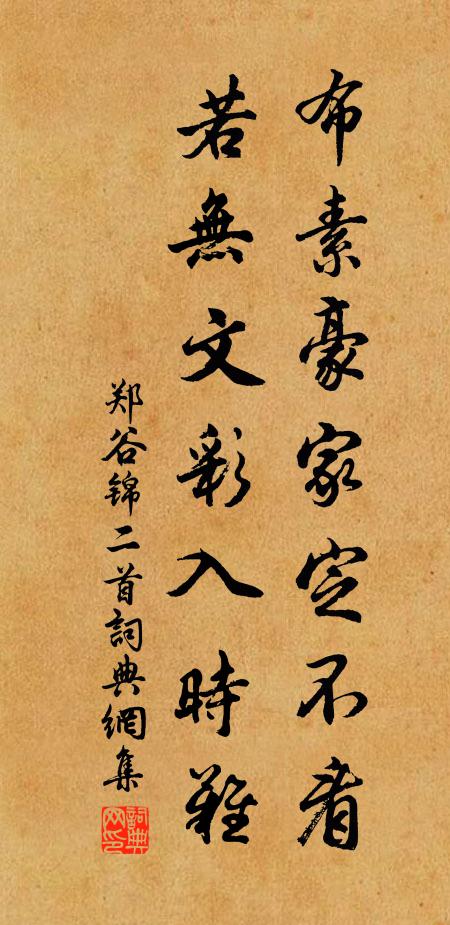 布素豪家定不看
若無文彩入時難
郑谷锦二首詞典網集
詞典网印